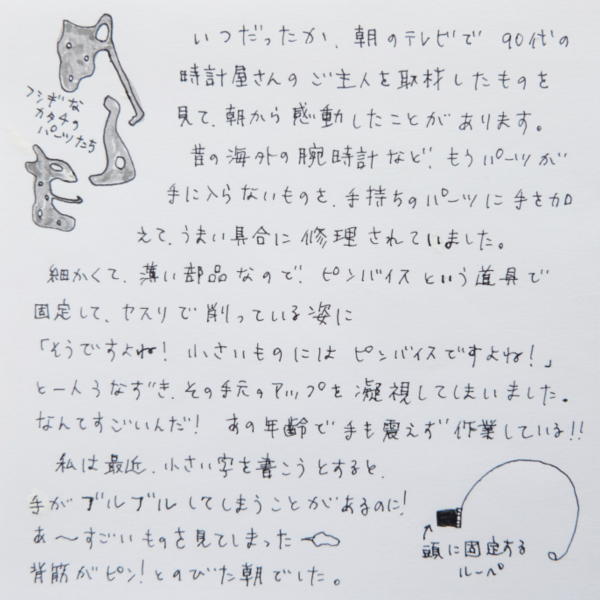 いつだったか、朝のテレビで 90代の
時計屋さんの ご主人を取材したものを
見て、朝から感動したことがあります。
昔の海外の腕時計など、もうパーツが
手に入らないものを、手持ちのパーツに手を加
えて、うまい具合に修理されていました。
細かくて、薄い部品なので、ピンバイスという道具で
固定して、ヤスリで削っている姿に
「そうですよね! 小さいものには ピンバイスですよね!」
と一人うなずき、その手元のアップを凝視してしまいました。
なんてすごいんだ! あの年齢で手も震えず作業している!!
私は最近、小さい字を書こうとすると、
手がブルブルしてしまうことがあるのに!
あ〜すごいものを見てしまった
背筋がピン!とのびた朝でした。
フシギな
カタチの
パーツたち
頭に固定する
ルーペ